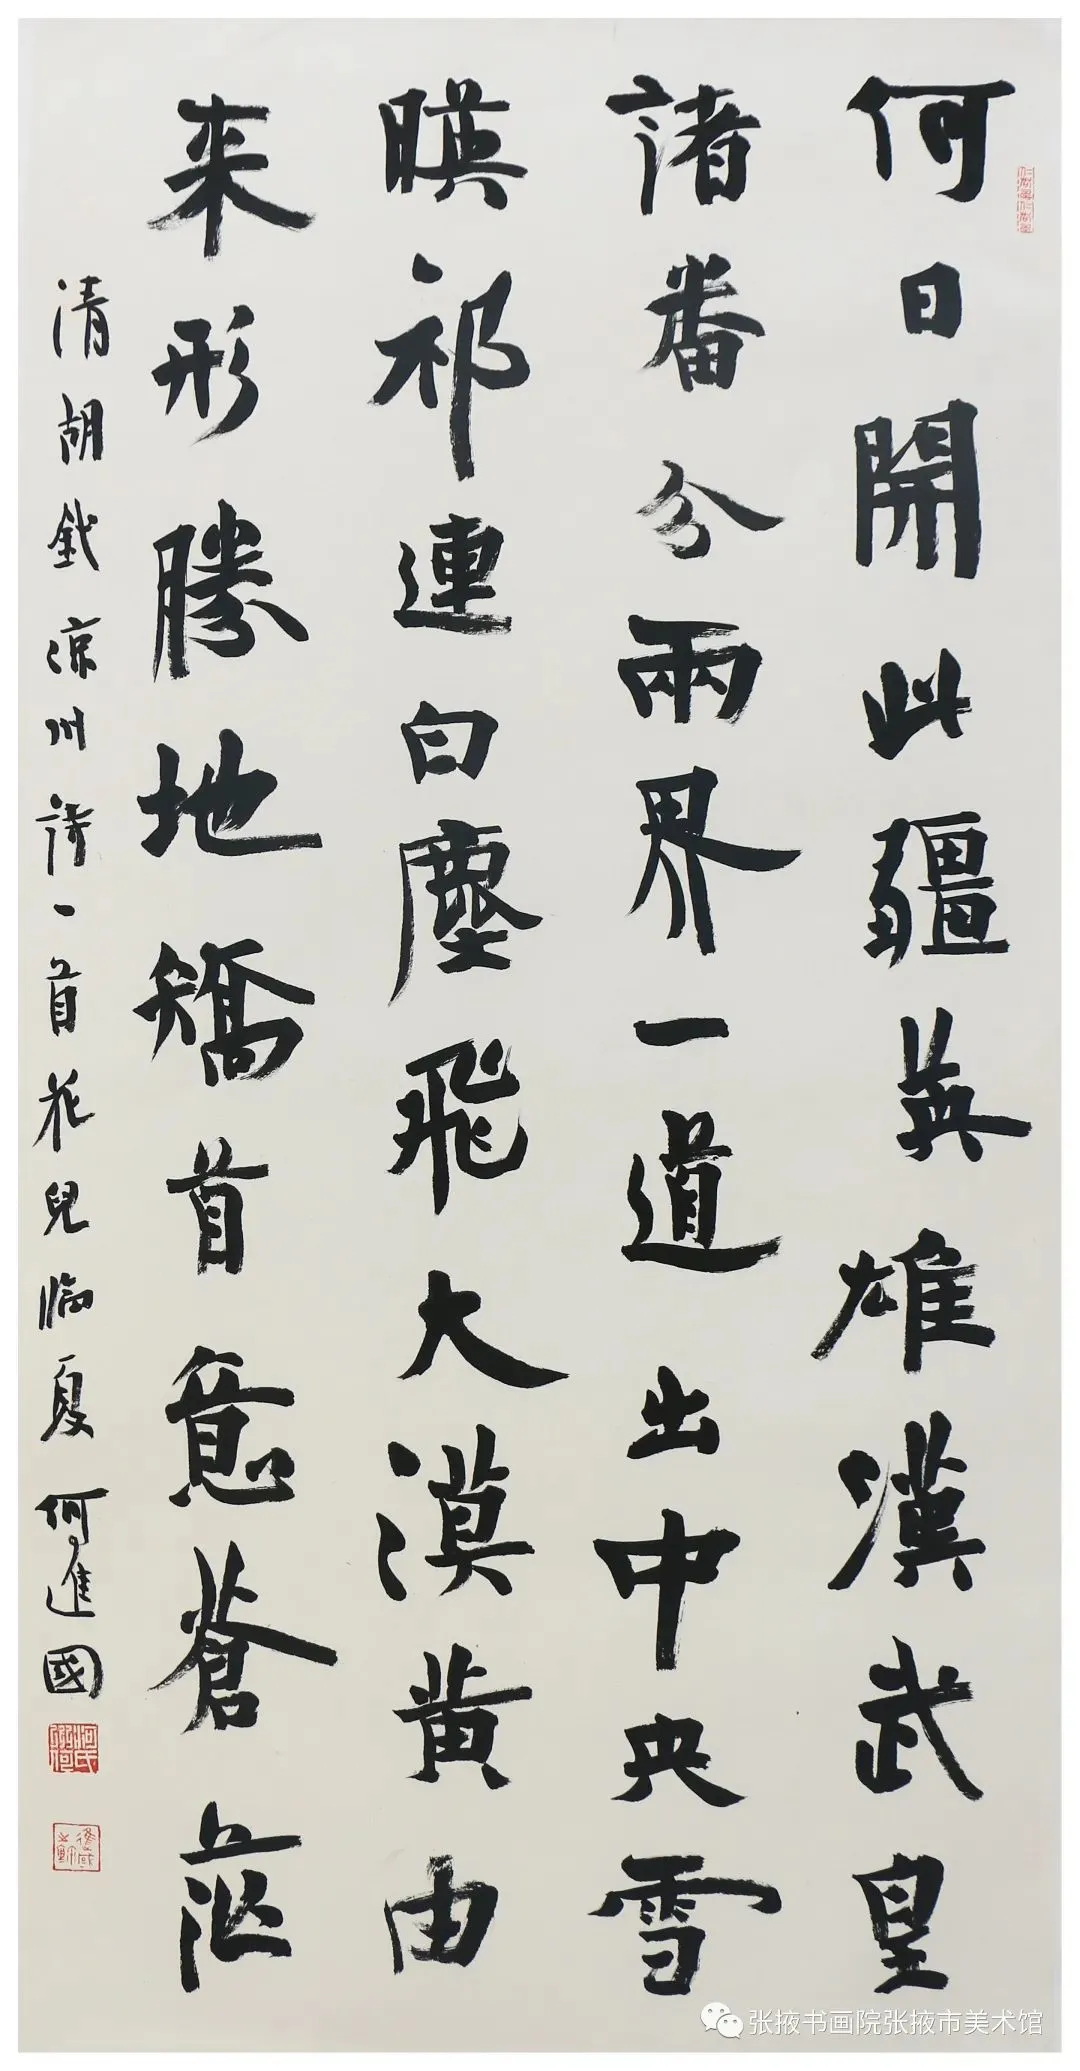 何日開此疆英雄漢武皇
諸番分兩界一道出中央雪
暎祁連白塵飛大漠黄由
来形勝地矯首意蒼茫
清胡釴凉州詩一首花兒臨夏何進國
张掖书画院张掖市美术馆